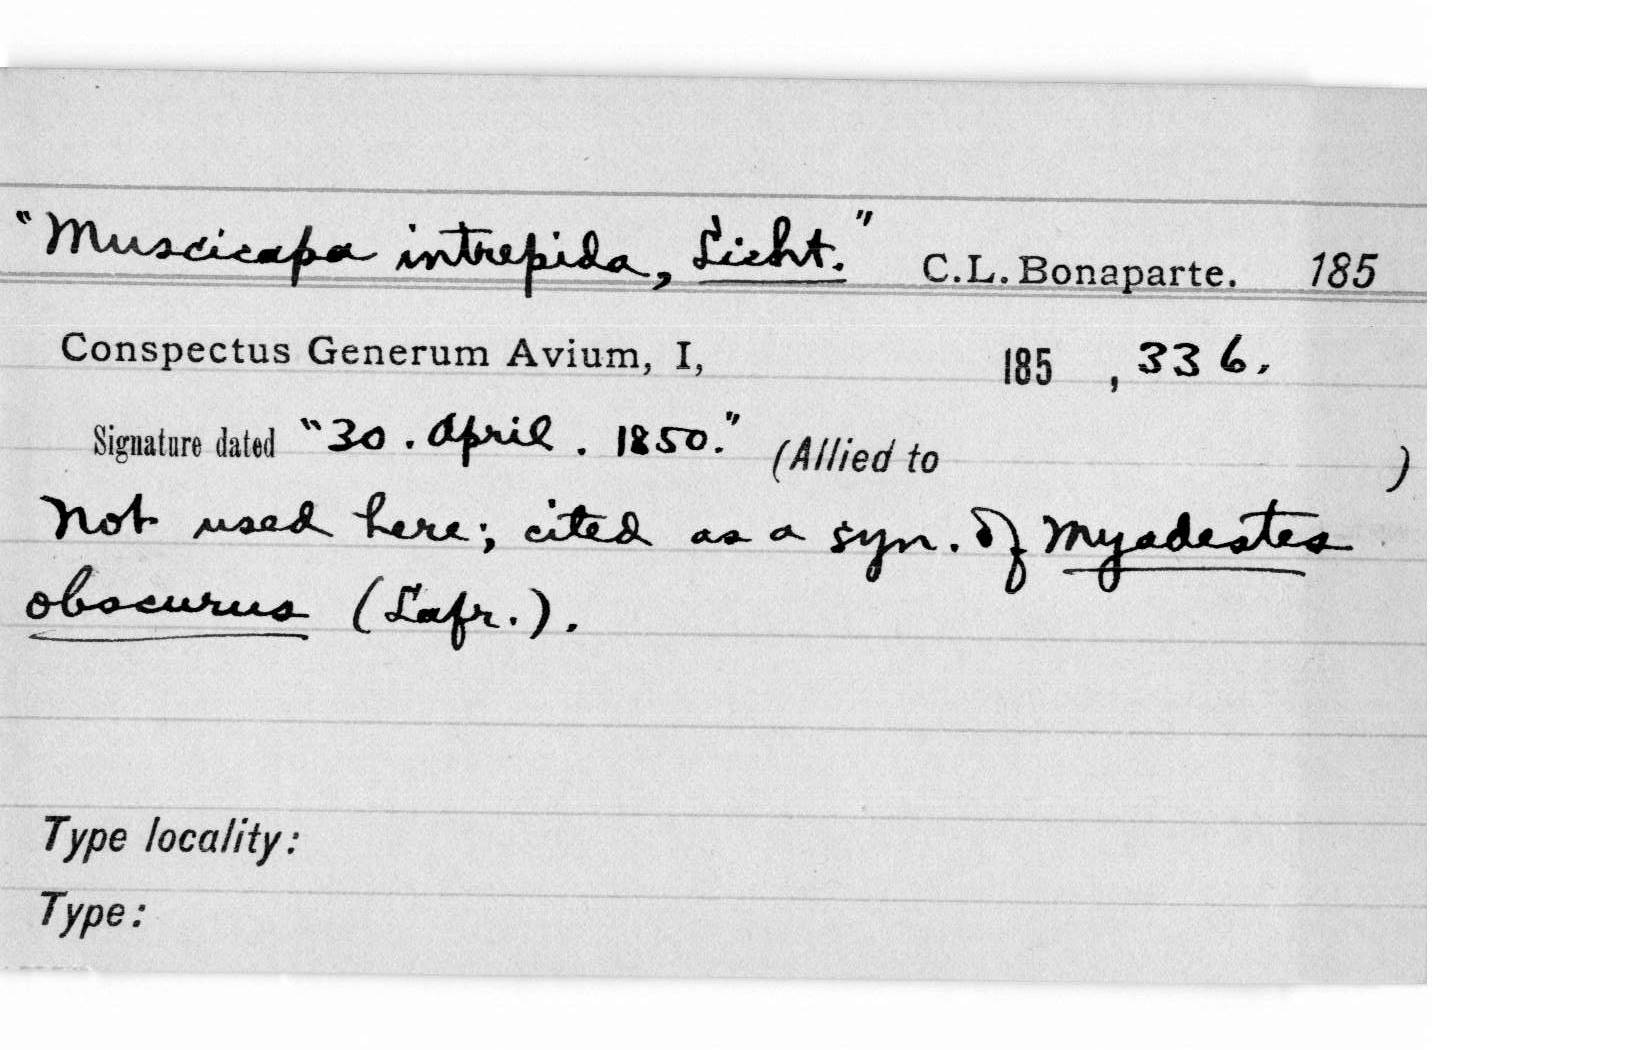 "Muscicapa intrepida, Licht." C.L. Bonaparte. 185
Conspectus Generum Avium, I, 185 , 336.
Signature dated "30 . April . 1850." (Allied to )
Not used here; cited as a syn. of Myadestes
obscurus (Lafr.).
Type locality:
Type: